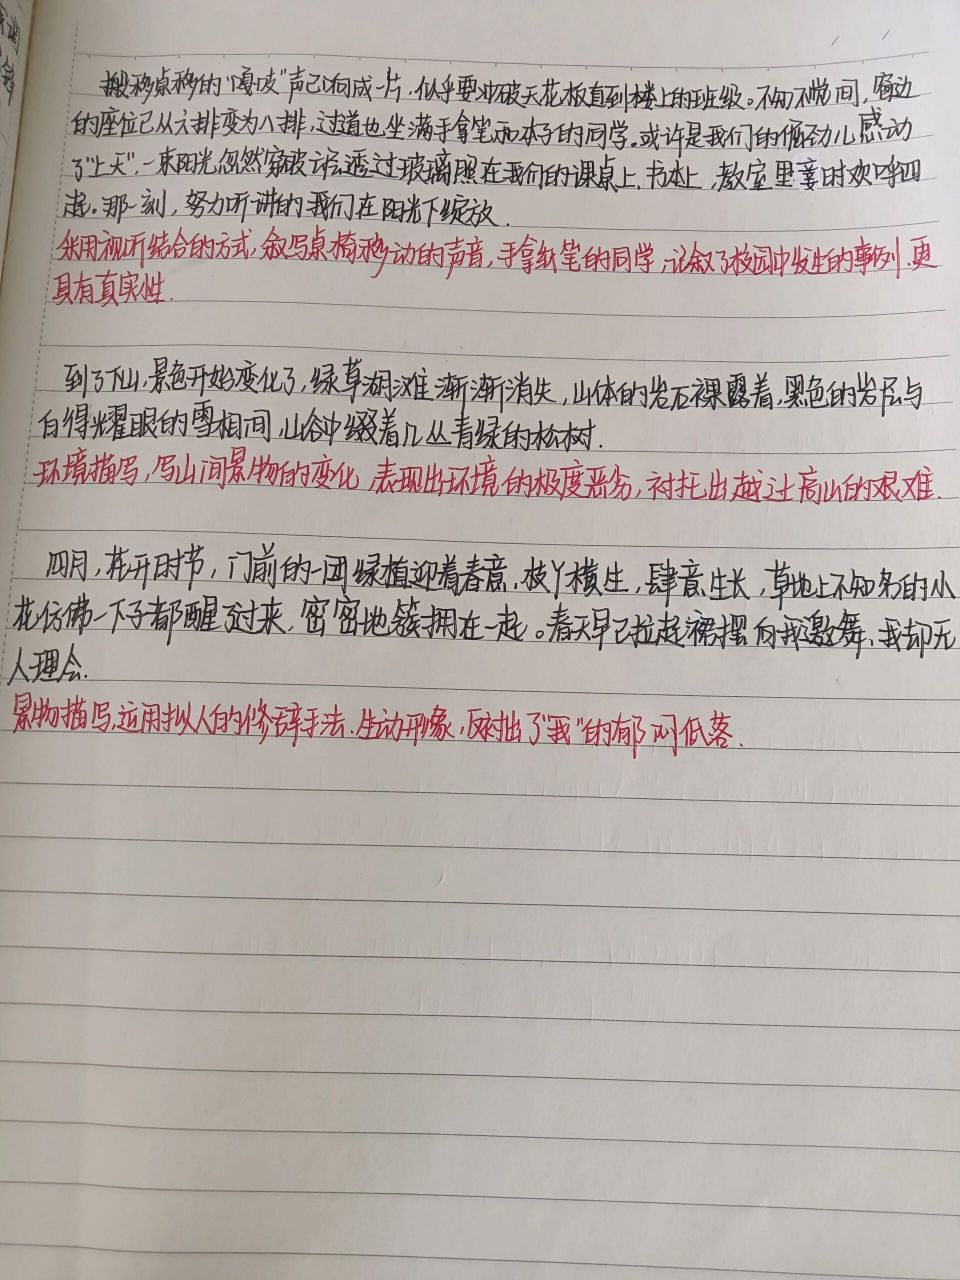 搬移桌移的“嘎吱”声已响成一片，似乎要冲破天花板直到楼上的班级。不知不觉间，窗边
的座位已从六排变为八排，过道也坐满手拿笔和本子的同学。或许是我们的倔劲儿感动
了“上天”，一束阳光忽然穿破云层透过玻璃照在我们的课桌上，书本上，教室里霎时欢呼四
起。那一刻，努力听讲的我们在阳光下绽放．
采用视听结合的方式，叙写桌椅移动的声音，手拿纸笔的同学，记叙了校园中发生的事例．更
具有真实性．
到了下山，景色开始变化了，绿草湖滩渐渐消失，山体的岩石裸露着，黑色的岩层与
白得耀眼的雪相间，山谷中缀着几丛青绿的松树．
环境描写，写山间景物的变化，表现出环境的极度恶劣，衬托出越过高山的艰难．
四月，花开时节，门前的一团绿植迎着春意．枝丫横生，肆意生长，草地上不知名的小
花仿佛一下子都醒了过来，密密地簇拥在一起。春天早已拉起裙摆向我邀舞，我却无
人理会．
景物描写，运用拟人的修辞手法．生动形象，反衬出了“我”的郁闷低落．